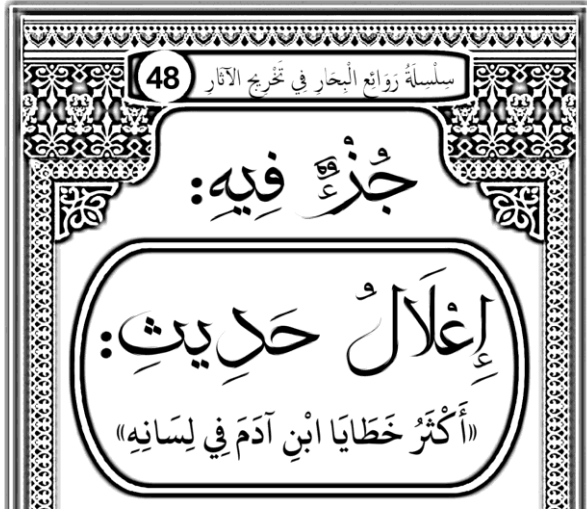 سِلْسِلَةُ رَوَائِعِ الْبِحَارِ فِي تَخْرِيجِ الآثَارِ (48)
جُزْءٌ فِيهِ:
إِعْلَالُ حَدِيثِ:
«أَكْثَرُ خَطَايَا ابْنِ آدَمَ فِي لِسَانِهِ»